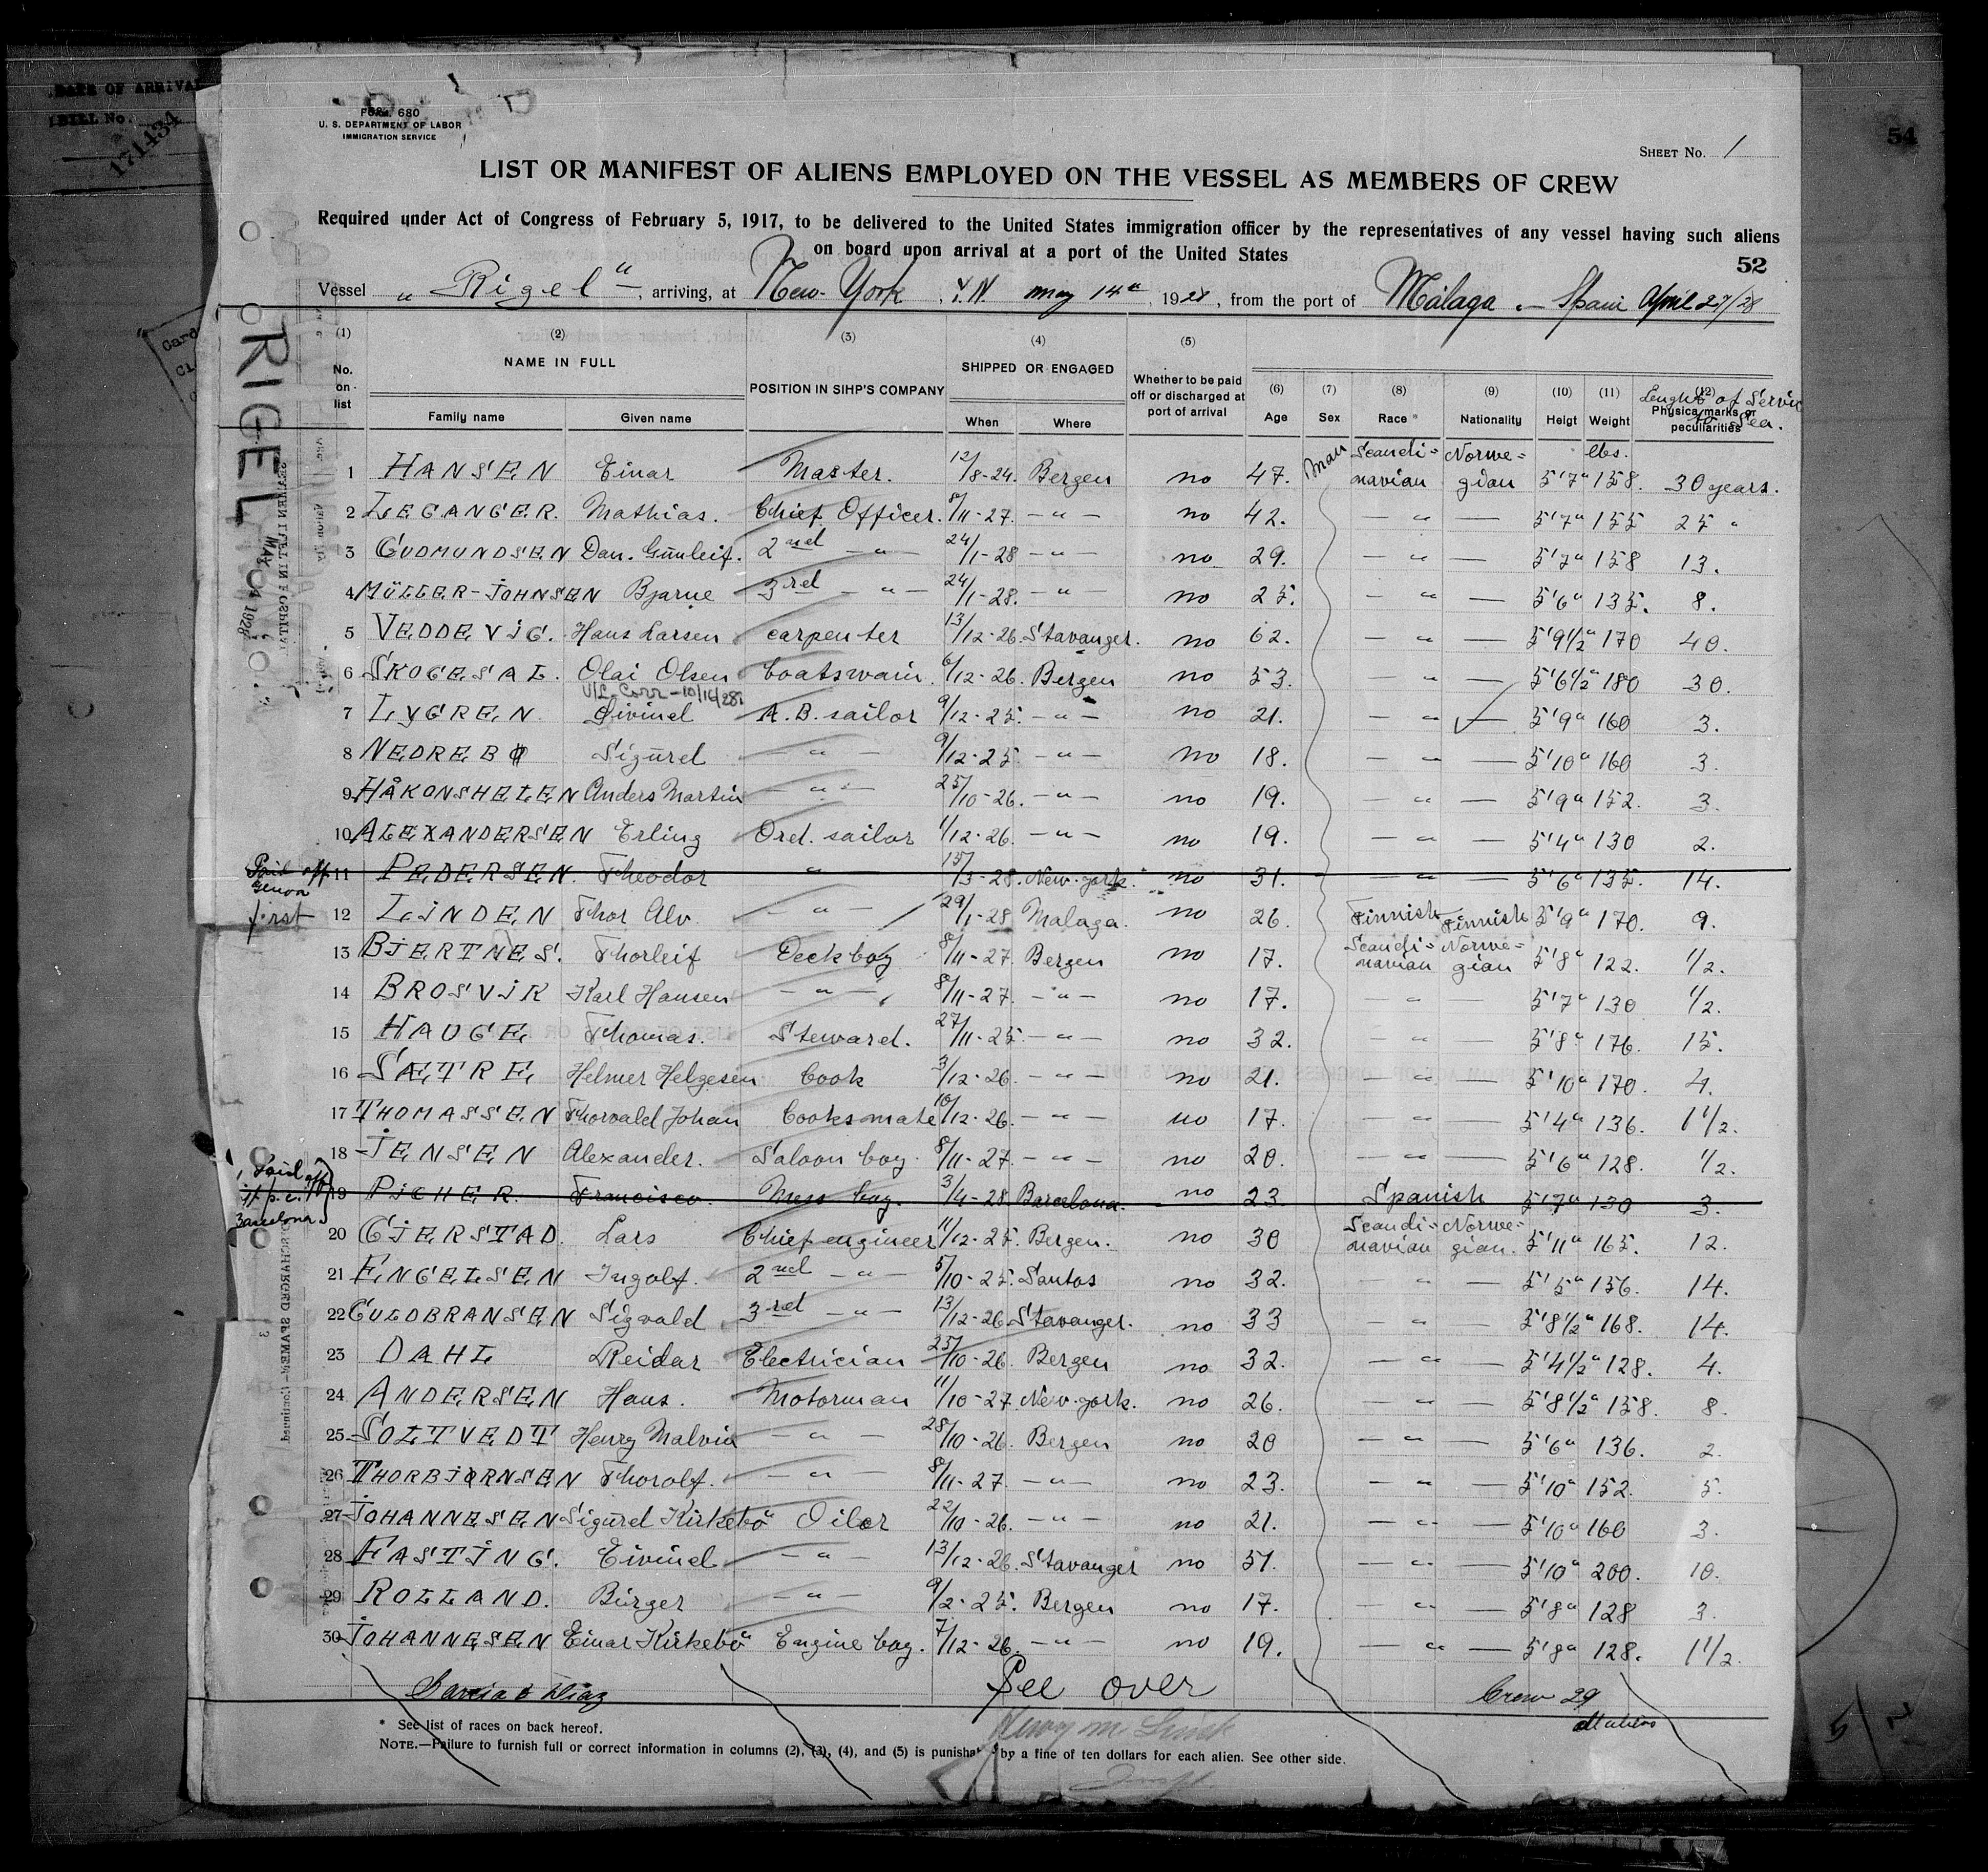 DATE OF ARRIVAL
BILL No.
171434
54
Form 680
U. S. DEPARTMENT OF LABOR
IMMIGRATION SERVICE
SHEET No. 1
LIST OR MANIFEST OF ALIENS EMPLOYED ON THE VESSEL AS MEMBERS OF CREW
Required under Act of Congress of February 5, 1917, to be delivered to the United States immigration officer by the representatives of any vessel having such aliens
on board upon arrival at a port of the United States
52
Vessel "Rigel", arriving, at New-York, may 14", 1928, from the port of Málaga - Spain April 27/28
RIGEL
(1) (2) (3) (4) (5)
No. on list NAME IN FULL POSITION IN SIHP'S COMPANY SHIPPED OR ENGAGED Whether to be paid off or discharged at port of arrival (6) Age (7) Sex (8) Race * (9) Nationality (10) Heigt (11) Weight (12) Physical marks or peculiarities
Lenght of Servic to Sea.
Family name Given name When Where
1 HANSEN Einar Master. 12/8-24. Bergen no 47. Man Scandi=navian Norwe=gian 5'7" lbs. 158. 30 years.
2 LEGANGER. Mathias. Chief Officer. 8/11-27. -"- no 42. -"- 5'7" 155 25 "
3 GUDMUNDSEN Dan. Gunleif. 2nd -"- 24/1-28 -"- no 29. -"- 5'7" 158 13.
4 MÜLLER-JOHNSEN Bjarne 3rd -"- 24/1-28. -"- no 25. -"- 5'6" 135. 8.
5 VEDDEVIG. Hans Larsen carpenter 13/12-26. Stavanger. no 62. -"- 5'9½" 170 40.
6 SKOGESAL. Olai Olsen boatswain. 6/12-26. Bergen no 53. -"- 5'6½" 180 30.
V/L Corr-10/16/28
7 LYGREN Eivind A.B. sailor 9/12-25. -"- no 21. -"- 5'9" 160 3.
8 NEDREBØ Sigurd -"- 9/12-25. -"- no 18. -"- 5'10" 160 3.
9 HÅKONSHELEN Anders Martin -"- 25/10-26. -"- no 19. -"- 5'9" 152. 3.
10 ALEXANDERSEN Erling Ord. sailor 1/12-26. -"- no 19. -"- 5'4" 130 2.
Paid off Genoa
11 PEDERSEN. Theodor " 15/3-28. New-york. no 31. -"- 5'6" 135. 14.
first
12 LINDEN Thor Alv. -"- 29/1-28 Malaga. no 26 Finnish Finnish 5'9" 170. 9.
13 BJERTNES. Thorleif Deck boy 8/11-27. Bergen no 17. Scandi=navian Norwe=gian 5'8" 122. ½.
14 BROSVIK Karl Hansen -"- 8/11-27. -"- no 17. " - 5'7" 130 ½.
15 HAUGE Thomas. Steward. 27/11-25. -"- no 32. -"- 5'8" 176. 15.
16 SÆTRE Helmer Helgesen Cook 3/12-26. -"- no 21. -"- 5'10" 170. 4.
17 THOMASSEN Thorvald Johan Cooks mate 10/12-26. -"- no 17. -"- 5'4" 136. 1½.
18 JENSEN Alexander. Saloon boy. 8/11-27. -"- no 20. -"- 5'6" 128. ½.
Paid off Barcelona
19 PICHER. Francisco. Mess boy. 3/4-28. Barcelona. no 23 Spanish 5'7" 130 3.
20 GJERSTAD. Lars Chief engineer 11/12-25. Bergen. no 30 Scandi=navian Norwe=gian. 5'11" 165. 12.
21 ENGELSEN Ingolf. 2nd -"- 5/10-25. Santos no 32. " - 5'5" 156. 14.
22 GULDBRANSEN Sigvald 3rd -"- 13/12-26 Stavanger. no 33 -"- 5'8½" 168. 14.
23 DAHL Reidar Electrician 25/10-26. Bergen no 32. -"- 5'4½" 128. 4.
24 ANDERSEN Hans. Motorman 11/10-27 New-york. no 26. -"- 5'8½" 158. 8.
25 SOLTVEDT Henry Malvin -"- 28/10-26. Bergen no 20 -"- 5'6" 136. 2.
26 THORBJØRNSEN Thorolf. -"- 8/11-27. -"- no 23. -"- 5'10" 152. 5.
27 JOHANNESEN Sigurd Kirkebö Oiler 22/10-26. -"- no 21. -"- 5'10" 160 3.
28 FASTING. Eivind -"- 13/12-26. Stavanger no 51. -"- 5'10" 200. 10.
29 ROLLAND. Birger -"- 9/2-25. Bergen no 17. -"- 5'8" 128 3.
30 JOHANNESEN Einar Kirkebö Engine boy. 7/12-26. -"- no 19. -"- 5'8" 128. 1½.
Garcia & Diaz See over Crew 29
* See list of races on back hereof.
NOTE.—Failure to furnish full or correct information in columns (2), (3), (4), and (5) is punishable by a fine of ten dollars for each alien. See other side.